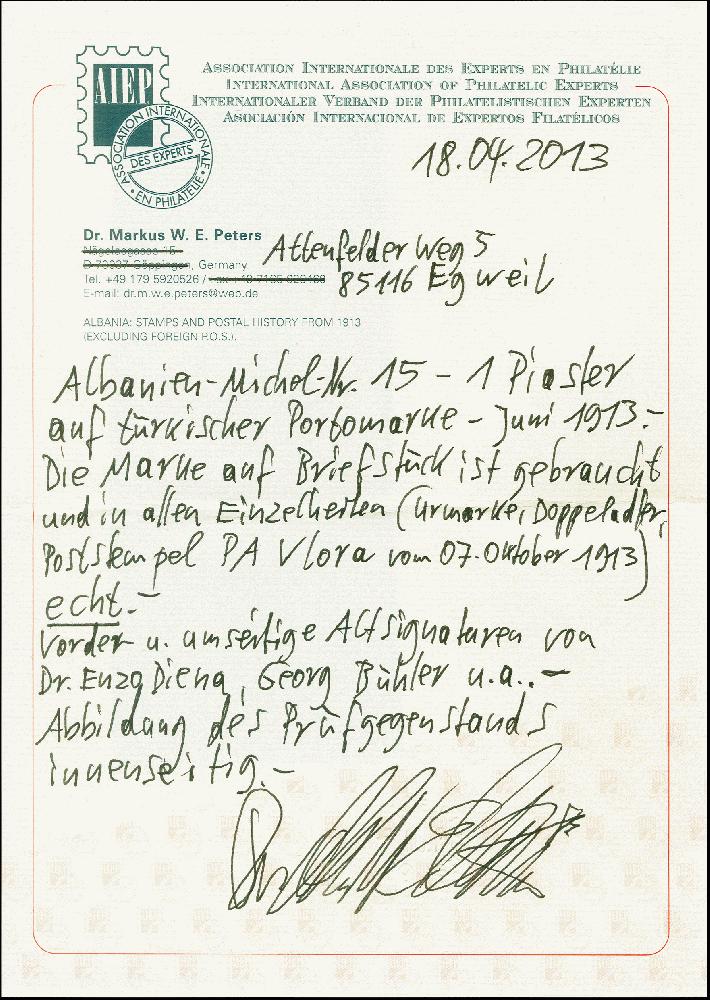 AIEP
ASSOCIATION INTERNATIONALE
DES EXPERTS
EN PHILATELIE
ASSOCIATION INTERNATIONALE DES EXPERTS EN PHILATÉLIE
INTERNATIONAL ASSOCIATION OF PHILATELIC EXPERTS
INTERNATIONALER VERBAND DER PHILATELISTISCHEN EXPERTEN
ASOCIACIÓN INTERNACIONAL DE EXPERTOS FILATÉLICOS
18.04.2013
Dr. Markus W. E. Peters
Nägelesgasse 15
Attenfelder Weg 5
D-73037 Göppingen, Germany
Tel. +49 179 5920526 /
85116 Egweil
E-mail: dr.m.w.e.peters@web.de
ALBANIA: STAMPS AND POSTAL HISTORY FROM 1913
(EXCLUDING FOREIGN P.O.S.).
Albanien-Michel-Nr. 15 - 1 Piaster
auf türkischer Portomarke - Juni 1913.-
Die Marke auf Briefstück ist gebraucht
und in allen Einzelheiten (Urmarke, Doppeladler,
Poststempel PA Vlora vom 07. Oktober 1913)
echt.-
Vorder u. umseitige Altsignaturen von
Dr. Enzo Diena, Georg Bühler u.a..-
Abbildung des Prüfgegenstands
innenseitig.-